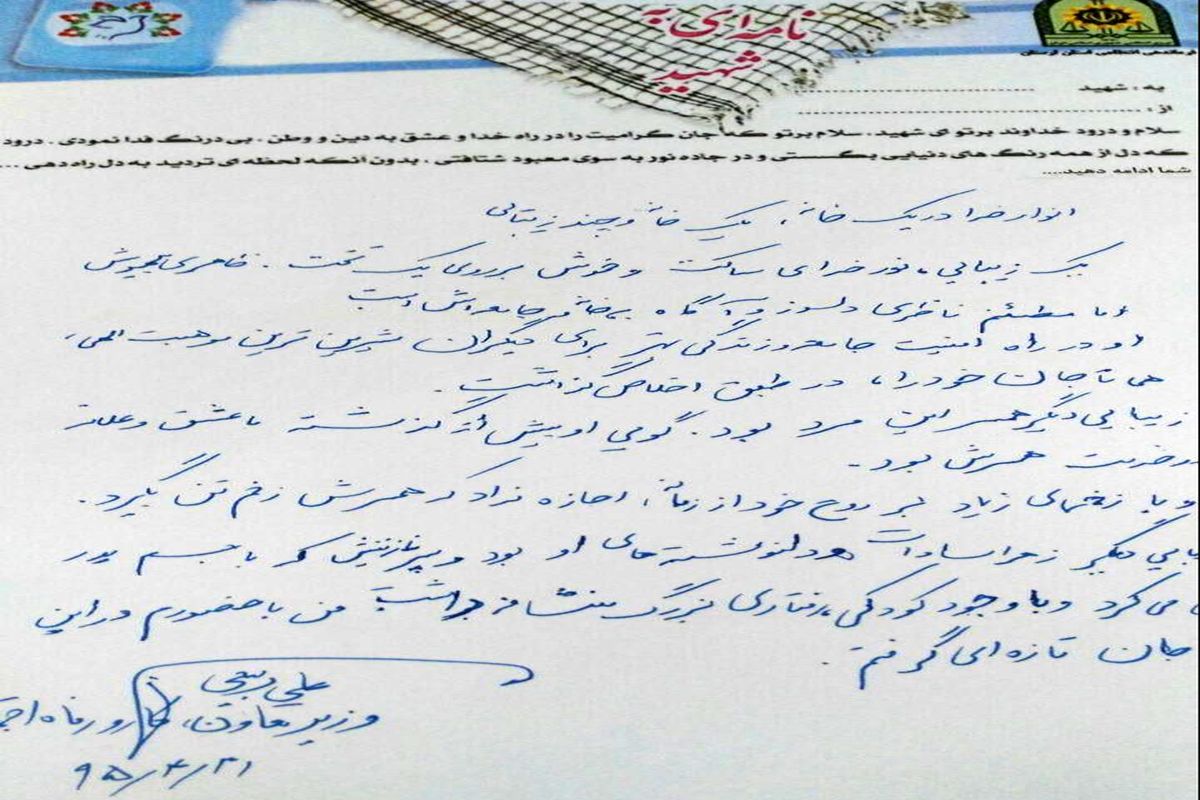 نامه ای به
شهید
فرماندهی انتظامی استان لرستان
به : شهید
از :
سلام و درود خداوند بر تو ای شهید. سلام بر تو که جان گرامیت را در راه خدا و عشق به دین و وطن ، بی درنگ فدا نمودی . درود
که دل از همه رنگ های دنیایی بگسستی و در جاده نور به سوی معبود شتافتی ، بدون آنکه لحظه ای تردید به دل راه دهی ...
شما ادامه دهید....
انوار خدا در یک خانه، یک خانه و چند زیبایی
یک زیبایی، نور خدای ساکت و خوش بر روی یک تخت . ظاهری
اما مطمئنم ناظری دلسوز و آگاه به خانه و جامعه اش است
او در راه امنیت جامعه و زندگی بهتر برای دیگران شیرین ترین موهبت الهی،
جان خود را، در طبق اخلاص گذاشت .
زیبایی دیگر همسر این مرد بود . گویی او بیش از گذشته با عشق و علاقه
خدمت همسرش بود .
و با زخمهای زیاد بر روح خود از زمانه، اجازه نداد که همسرش زخم تن بگیرد .
دیگر زهرا سادات و دلنوشته های او بود و که با جسم پدر
می کرد و با وجود کودکی، رفتاری بزرگ منشانه داشت من با حضورم در این
جان تازه ای گرفتم .
علی ربیعی
وزیر تعاون، کار و رفاه
۹۵/۴/۲۱